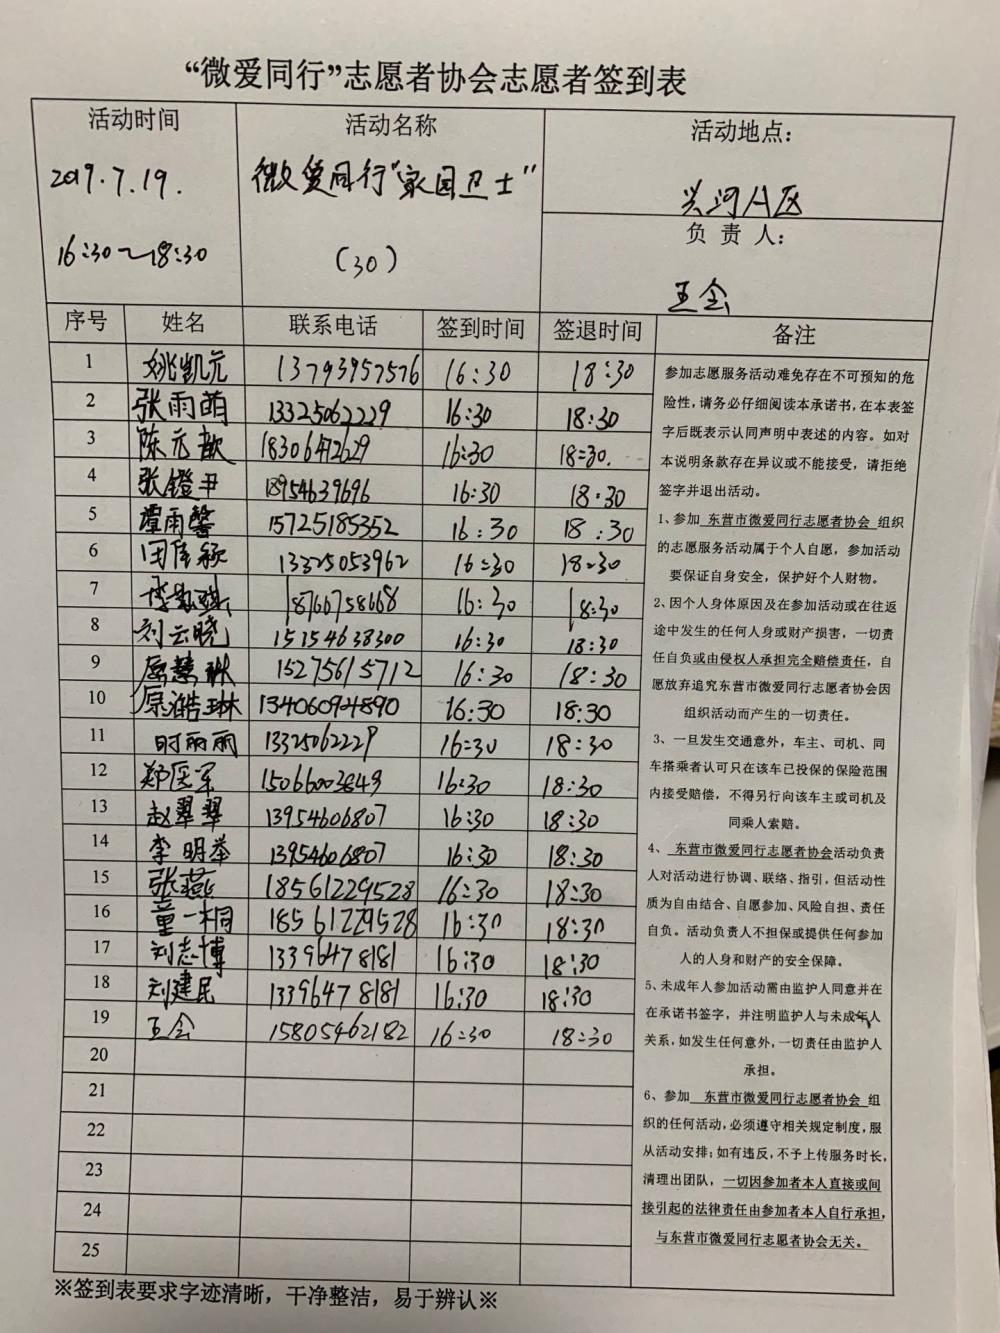 “微爱同行”志愿者协会志愿者签到表
活动时间
2019.7.19.
16:30~18:30
活动名称
微爱同行“家园卫士”
(30)
活动地点:
兴河A区
负 责 人:
王会
序号 姓名 联系电话 签到时间 签退时间 备注
1 姚凯元 13793957576 16:30 18:30
2 张雨萌 13325062229 16:30 18:30
3 陈元歆 18306472629 16:30 18:30.
4 张镫尹 18954639696 16:30 18:30
5 覃雨馨 15725185352 16:30 18:30
6 13325053962 16:30 18:30
7 18766758668 16:30 18:30
8 刘云晓 15154638300 16:30 18:30
9 15275615712 16:30 18:30
10 13406094890 16:30 18:30
11 时丽雨 13325062229 16:30 18:30
12 郑医军 15066003849 16:30 18:30
13 赵翠翠 13954606807 16:30 18:30
14 李明举 13954606807 16:30 18:30
15 张燕 18561229528 16:30 18:30
16 童一桐 18561229528 16:30 18:30
17 刘志博 13396478181 16:30 18:30
18 刘建民 13396478181 16:30 18:30
19 王会 15805462182 16:30 18:30
20
21
22
23
24
25
参加志愿服务活动难免存在不可预知的危
险性,请务必仔细阅读本承诺书,在本表签
字后既表示认同声明中表述的内容。如对
本说明条款存在异议或不能接受,请拒绝
签字并退出活动。
1、参加 东营市微爱同行志愿者协会 组织
的志愿服务活动属于个人自愿,参加活动
要保证自身安全,保护好个人财物。
2、因个人身体原因及在参加活动或在往返
途中发生的任何人身或财产损害,一切责
任自负或由侵权人承担完全赔偿责任,自
愿放弃追究东营市微爱同行志愿者协会因
组织活动而产生的一切责任。
3、一旦发生交通意外,车主、司机、同
车搭乘者认可只在该车已投保的保险范围
内接受赔偿,不得另行向该车主或司机及
同乘人索赔。
4、 东营市微爱同行志愿者协会活动负责
人对活动进行协调、联络、指引,但活动性
质为自由结合、自愿参加、风险自担、责任
自负。活动负责人不担保或提供任何参加
人的人身和财产的安全保障。
5、未成年人参加活动需由监护人同意并在
在承诺书签字,并注明监护人与未成年人
关系,如发生任何意外,一切责任由监护人
承担。
6、参加 东营市微爱同行志愿者协会 组
织的任何活动,必须遵守相关规定制度,服
从活动安排;如有违反,不予上传服务时长,
清理出团队,一切因参加者本人直接或间
接引起的法律责任由参加者本人自行承担,
与东营市微爱同行志愿者协会无关。
※签到表要求字迹清晰,干净整洁,易于辨认※